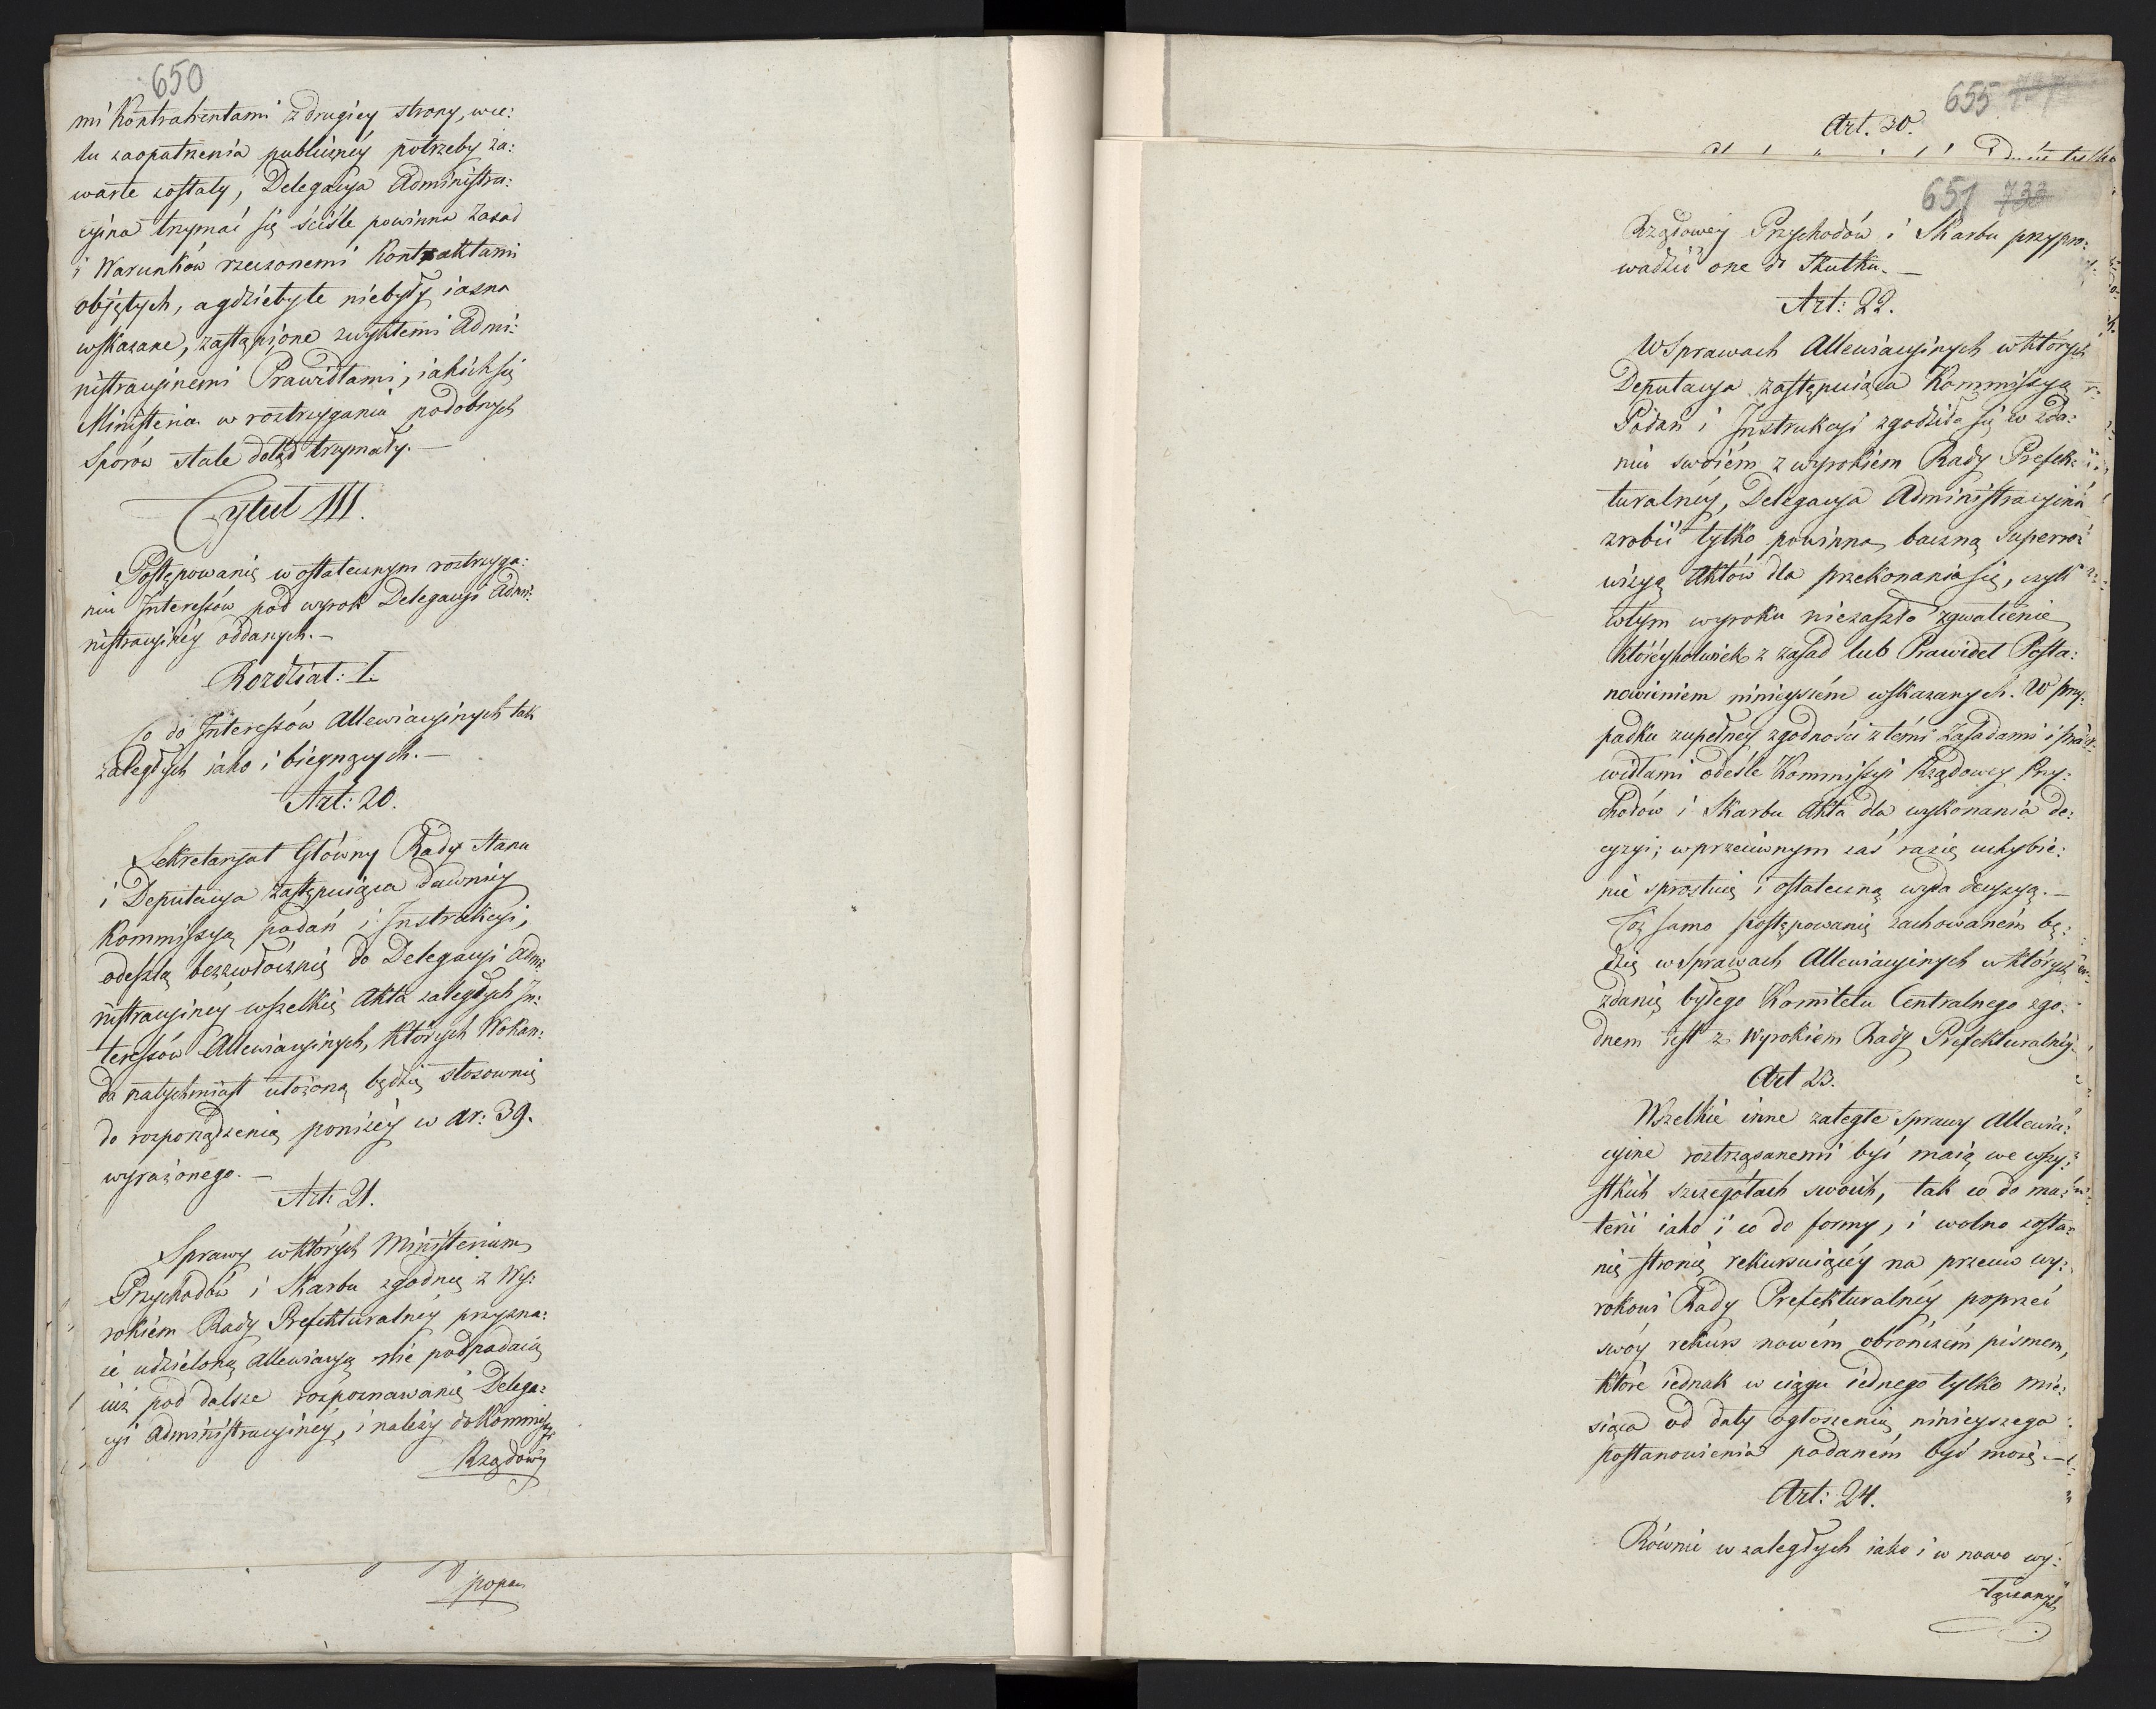 650
mi Kontrahentami z drugiey strony, wce:
lu zaopatrzenia publiczney potrzeby za:
warte zostały, Delegacya Administra:
cyina trzymać się ściśle powinna Zasad
i Warunków rzeczonemi Kontraktami
objętych, a gdzieby te niebyły iasno
wskazane, zastąpione zwykłemi Admi:
nistracyinemi Prawidłami, iakich się
Ministeria w roztrzyganiu podobnych
Sporów stale dotąd trzymały. —
Tytuł III.
Postępowanie w ostatecznym roztrzyga:
niu Interessów pod wyrok Delegacyi Admi:
nistracyiney oddanych. —
Rozdział: I.
Co do Interessów Allewiacyinych tak
zaległych iako i biegnących. —
Art: 20.
Sekretaryat Główny Rady Stanu
i Deputacya zastępuiąca dawniey
Kommissyą podań i Instrukcyi,
odeszlą bezzwłocznie do Delegacyi Admi:
nistracyiney wszelkie Akta zaległych In:
teressów Allewiacyinych, których Wokan:
da natychmiast ułożoną będzie stosownie
do rozporządzenia poniżey w ar: 39.
wyrażonego. —
Art: 21.
Sprawy w których Ministerium
Przychodów i Skarbu zgodnie z Wy:
rokiem Rady Prefekturalney przyzna:
ie udzieloną Allewiacyą nie podpadaią
iuż pod dalsze rozpoznawanie Delega:
cyi Administracyiney, i należy do Kommissyi
Rządowey
popar
655
Art. 30.
651 733
Rządowey Przychodów i Skarbu przypro:
wadzić one do Skutku. —
Art: 22.
W Sprawach Allewiacyinych w których
Deputacya zastępuiąca Kommissyą
Podań i Instrukcyi zgodziła się w zda:
niu swoiém z wyrokiem Rady Prefek:
turalney, Delegacya Administracyina
zrobić tylko powinna baczną superre:
wizyą Aktów dla przekonania się, czyli
w tym wyroku niezaszło zgwałcenie
któreykolwiek z zasad lub Prawideł Posta:
nowieniem ninieyszém wskazanych. W przy:
padku zupełney zgodności z témi Zasadami i pra:
widłami odeśle Kommissyi Rządowey Przy:
chodów i Skarbu Akta dla wykonania de:
cyzyi; w przeciwnym zaś razie uchybie:
nie sprostuie i ostateczną wyda decyzyą. —
Toż samo postępowanie zachowaném bę:
dzie w Sprawach Allewiacyinych w których
zdanie byłego Komitetu Centralnego zgo:
dnem iest z Wyrokiem Rady Prefekturalney.
Art 23.
Wszelkie inne zaległe Sprawy Allewia:
cyine roztrząsanemi być maią we wszy:
stkich szczegółach swoich, tak co do ma:
teryi iako i co do formy, i wolno zosta:
nie stronie rekursuiącéy na przeciw wy:
rokowi Rady Prefekturalnéy poprzeć
swóy rekurs nowém obrończém pismem,
które iednak w ciągu iednego tylko mie:
siąca od daty ogłoszenia ninieyszego
postanowienia podaném być może. —
Art: 24.
Równie w zaległych iako i w nowo wy:
tączanych